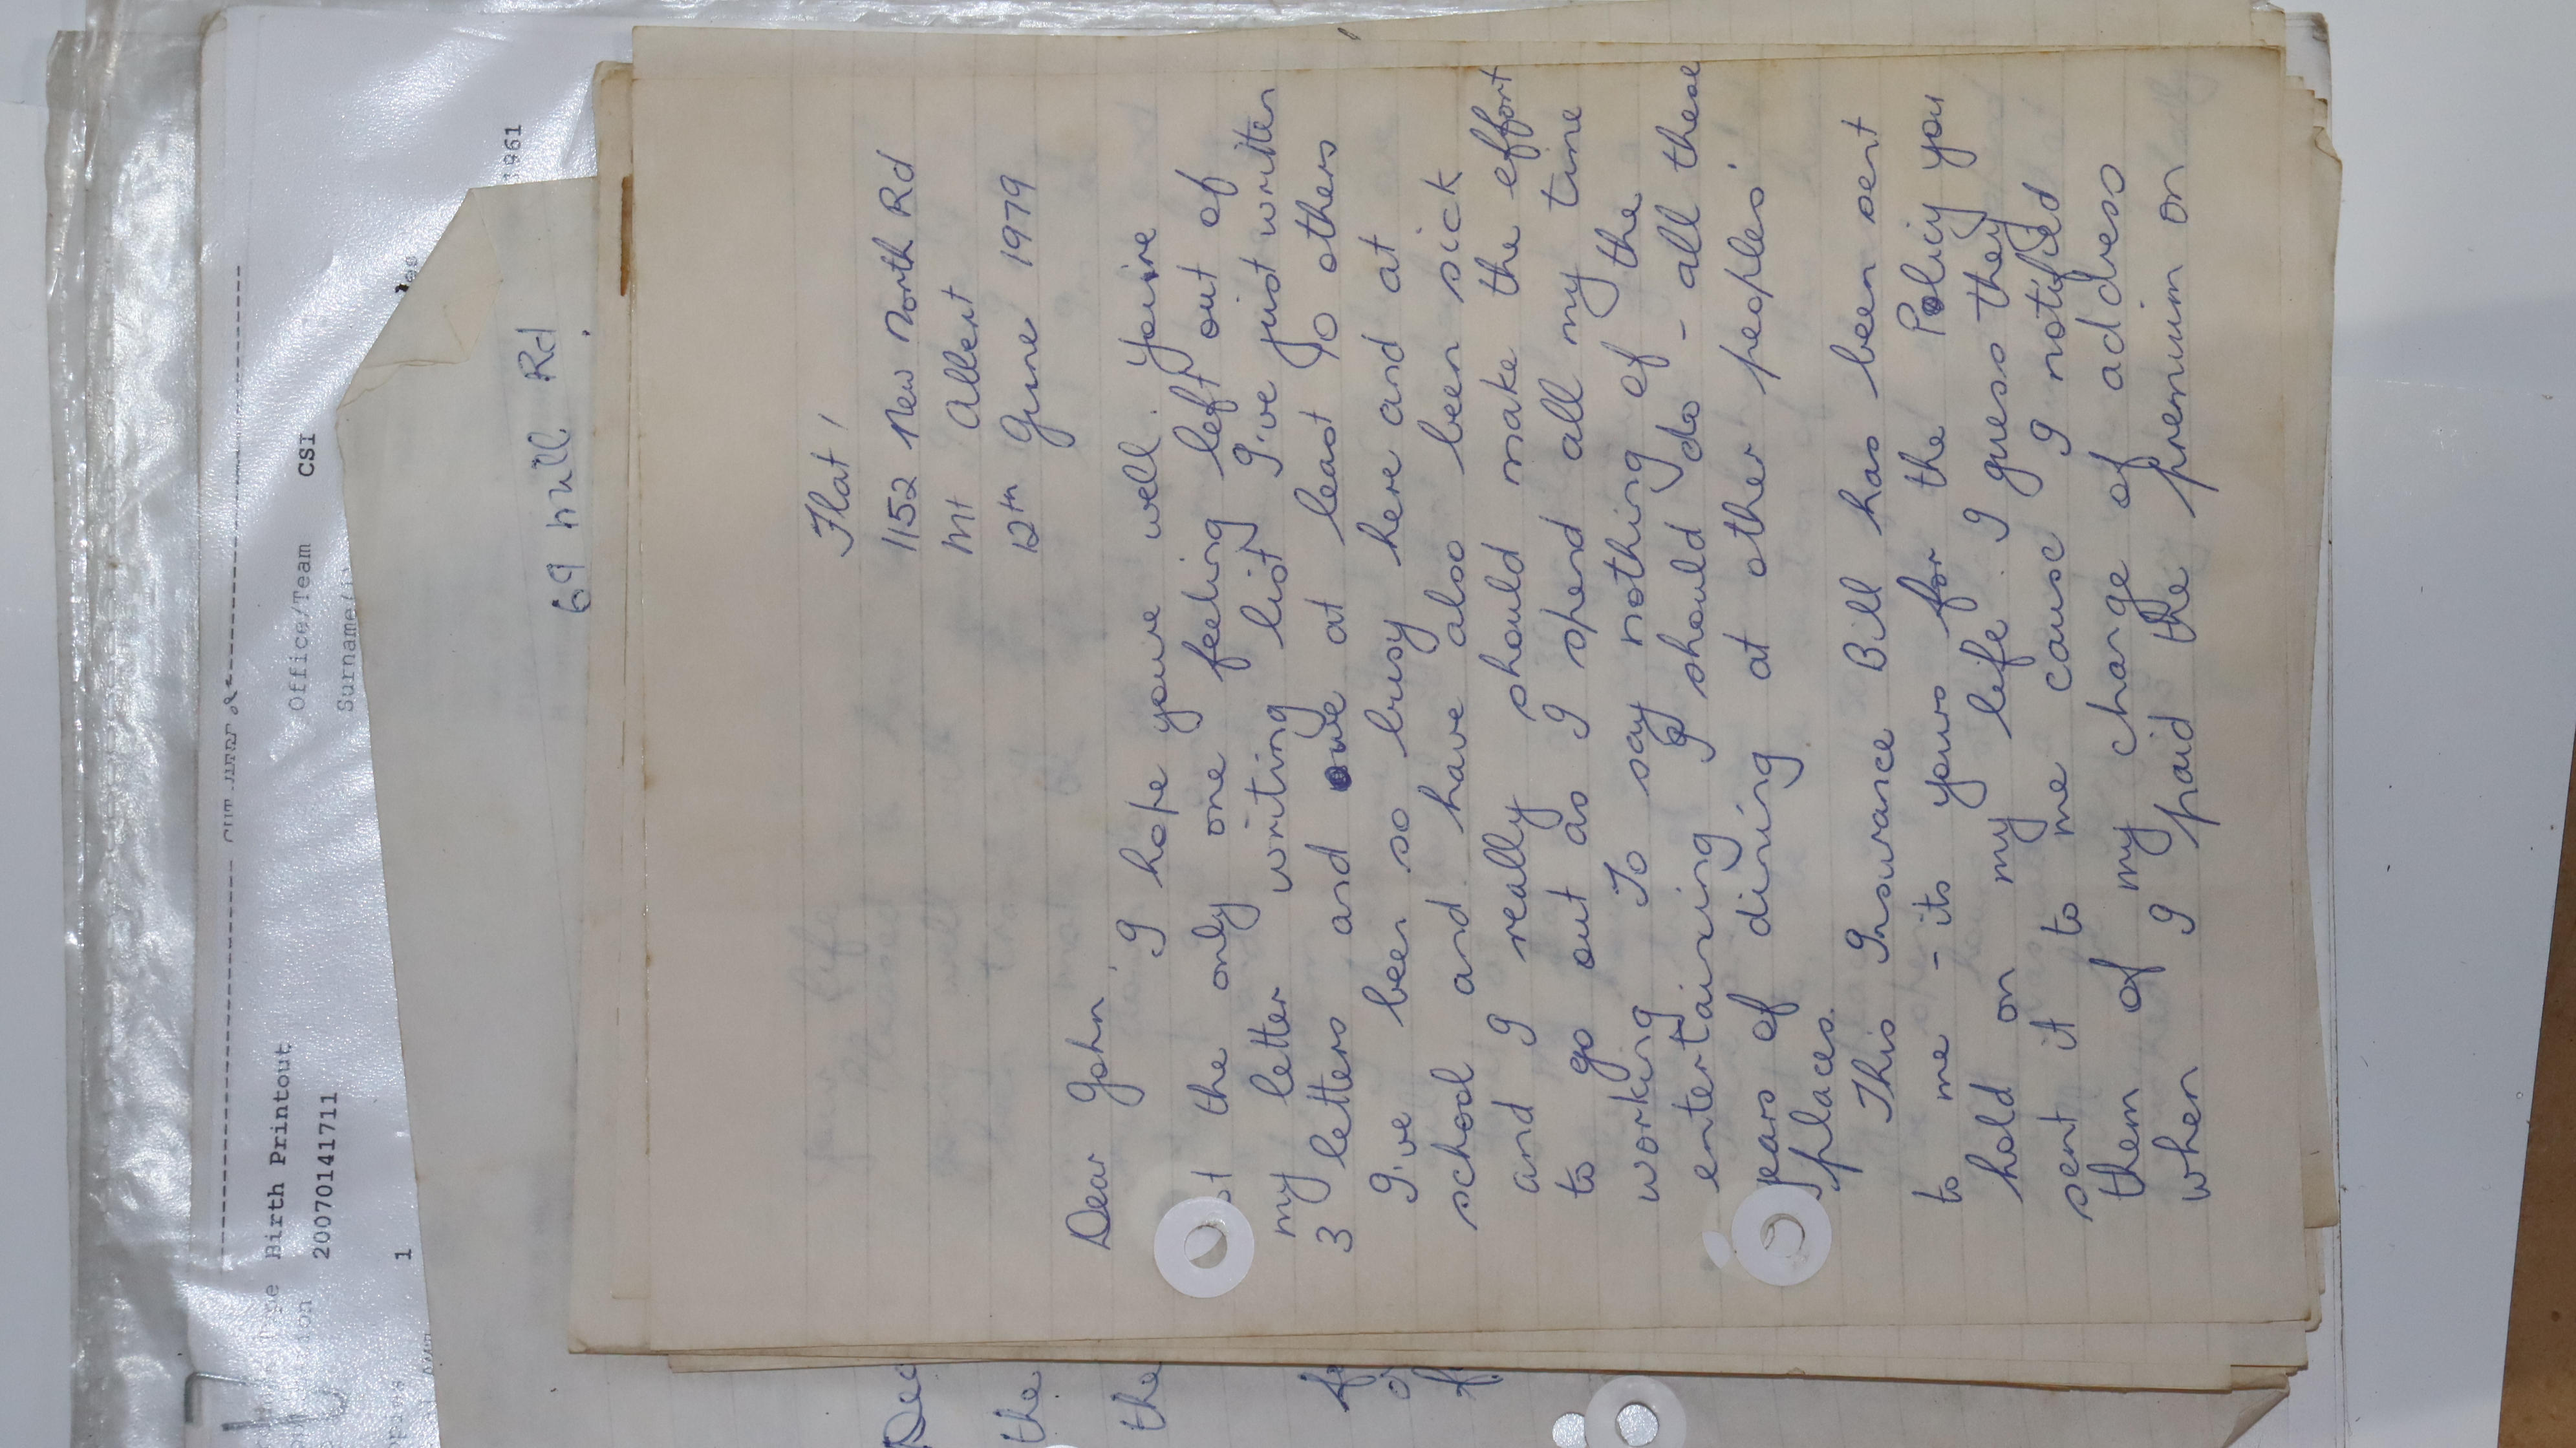 Birth Printout
20070141711
1
Office/Team CSI
Surname
69 hill Rd
Flat 1
1152 New North Rd
Mt Albert
12th June 1979
Dear John,
I hope youre well. You're
the only one feeling left out of
my letter writing list I've just written
3 letters and owe at least 10 others
I've been so busy here and at
school and have also been sick
and I really should make the effort
to go out as I spend all my time
working To say nothing of the
entertaining I should do - all these
years of dining at other peoples'
places.
This Insurance Bill has been sent
to me - its yours for the Policy you
hold on my life. I guess they
sent it to me cause I notified
them of my change of address
when I paid the premium on
the
the